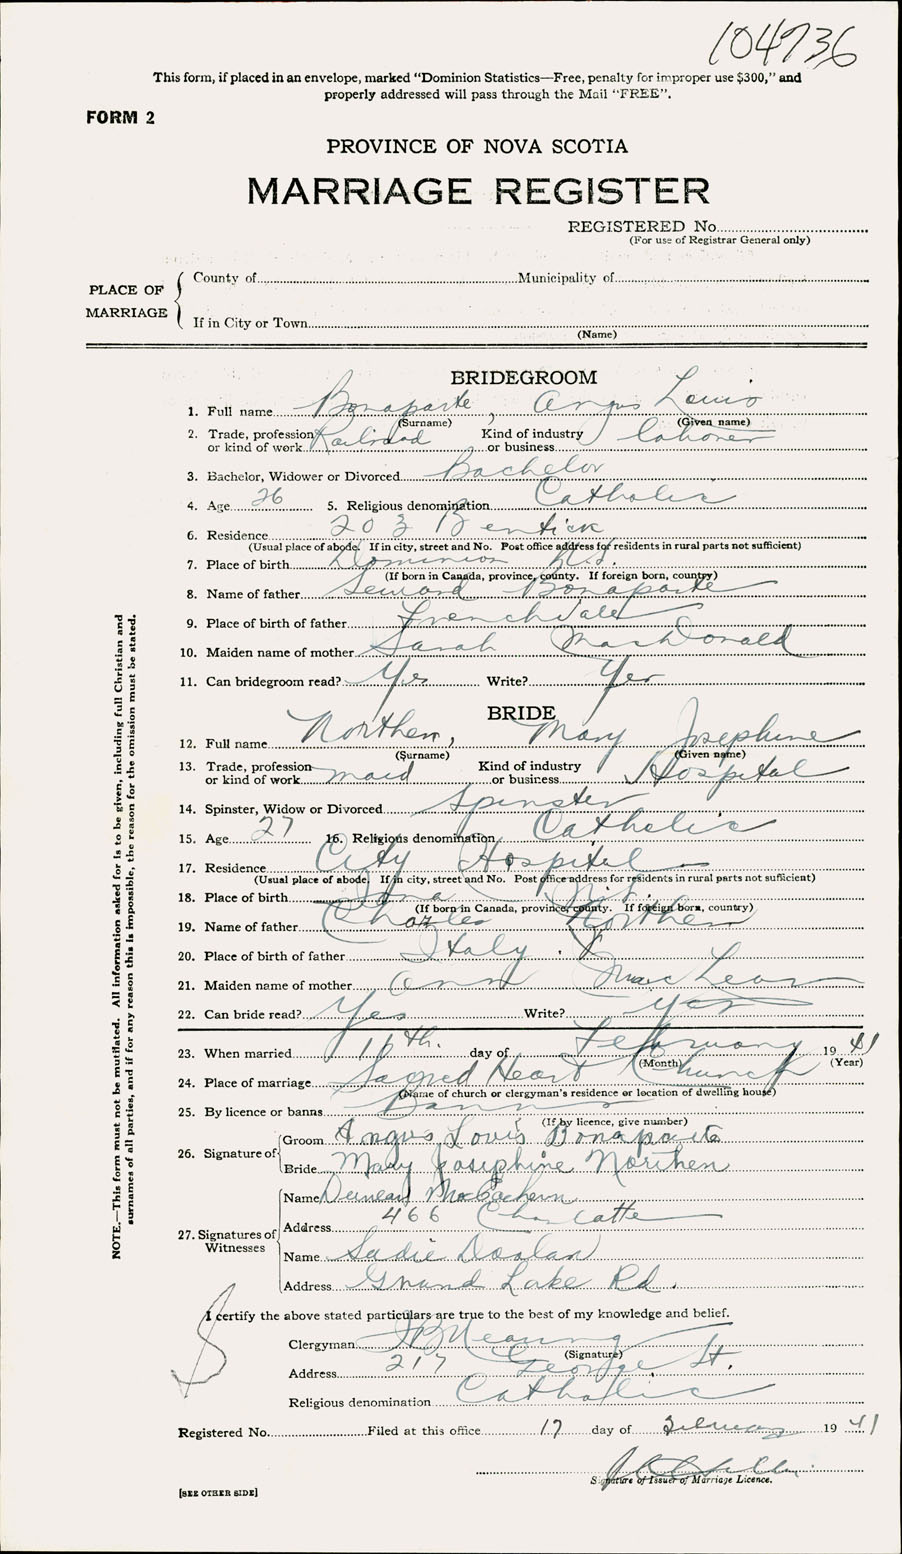 104736
This form, if placed in an envelope, marked “Dominion Statistics—Free, penalty for improper use $300,” and
properly addressed will pass through the Mail “FREE”.
FORM 2
PROVINCE OF NOVA SCOTIA
MARRIAGE REGISTER
REGISTERED No.
(For use of Registrar General only)
PLACE OF MARRIAGE
County of Municipality of
If in City or Town
(Name)
BRIDEGROOM
1. Full name Bonaparte, Angus Louis
(Surname) (Given name)
2. Trade, profession or kind of work Railroad Kind of industry or business labourer
3. Bachelor, Widower or Divorced Bachelor
4. Age 26 5. Religious denomination Catholic
6. Residence 203 Bentick
(Usual place of abode. If in city, street and No. Post office address for residents in rural parts not sufficient)
7. Place of birth Dominion N.S.
(If born in Canada, province, county. If foreign born, country)
8. Name of father Bonaparte
9. Place of birth of father Frenchvale
10. Maiden name of mother Sarah MacDonald
11. Can bridegroom read? Yes Write? Yes
BRIDE
12. Full name Northen, Mary Josephine
(Surname) (Given name)
13. Trade, profession or kind of work maid Kind of industry or business Hospital
14. Spinster, Widow or Divorced Spinster
15. Age 27 16. Religious denomination Catholic
17. Residence City Hospital
(Usual place of abode. If in city, street and No. Post office address for residents in rural parts not sufficient)
18. Place of birth Iona N.S.
(If born in Canada, province, county. If foreign born, country)
19. Name of father Charles Northen
20. Place of birth of father Italy
21. Maiden name of mother Ann MacLean
22. Can bride read? Yes Write? Yes
23. When married day of February 1941
(Month) (Year)
24. Place of marriage Sacred Heart Church
(Name of church or clergyman's residence or location of dwelling house)
25. By licence or banns Banns
(If by licence, give number)
26. Signature of
Groom Angus Louis Bonaparte
Bride Mary Josephine Northen
27. Signatures of Witnesses
Name Duncan McEachern
Address 466 Charlotte
Name Sadie Doolan
Address Grand Lake Rd.
I certify the above stated particulars are true to the best of my knowledge and belief.
Clergyman
(Signature)
Address 217 George St.
Religious denomination Catholic
Registered No. Filed at this office 17 day of February 1941
Signature of Issuer of Marriage Licence.
[SEE OTHER SIDE]
NOTE.—This form must not be mutilated. All information asked for is to be given, including full Christian and
surnames of all parties, and if for any reason this is impossible, the reason for the omission must be stated.